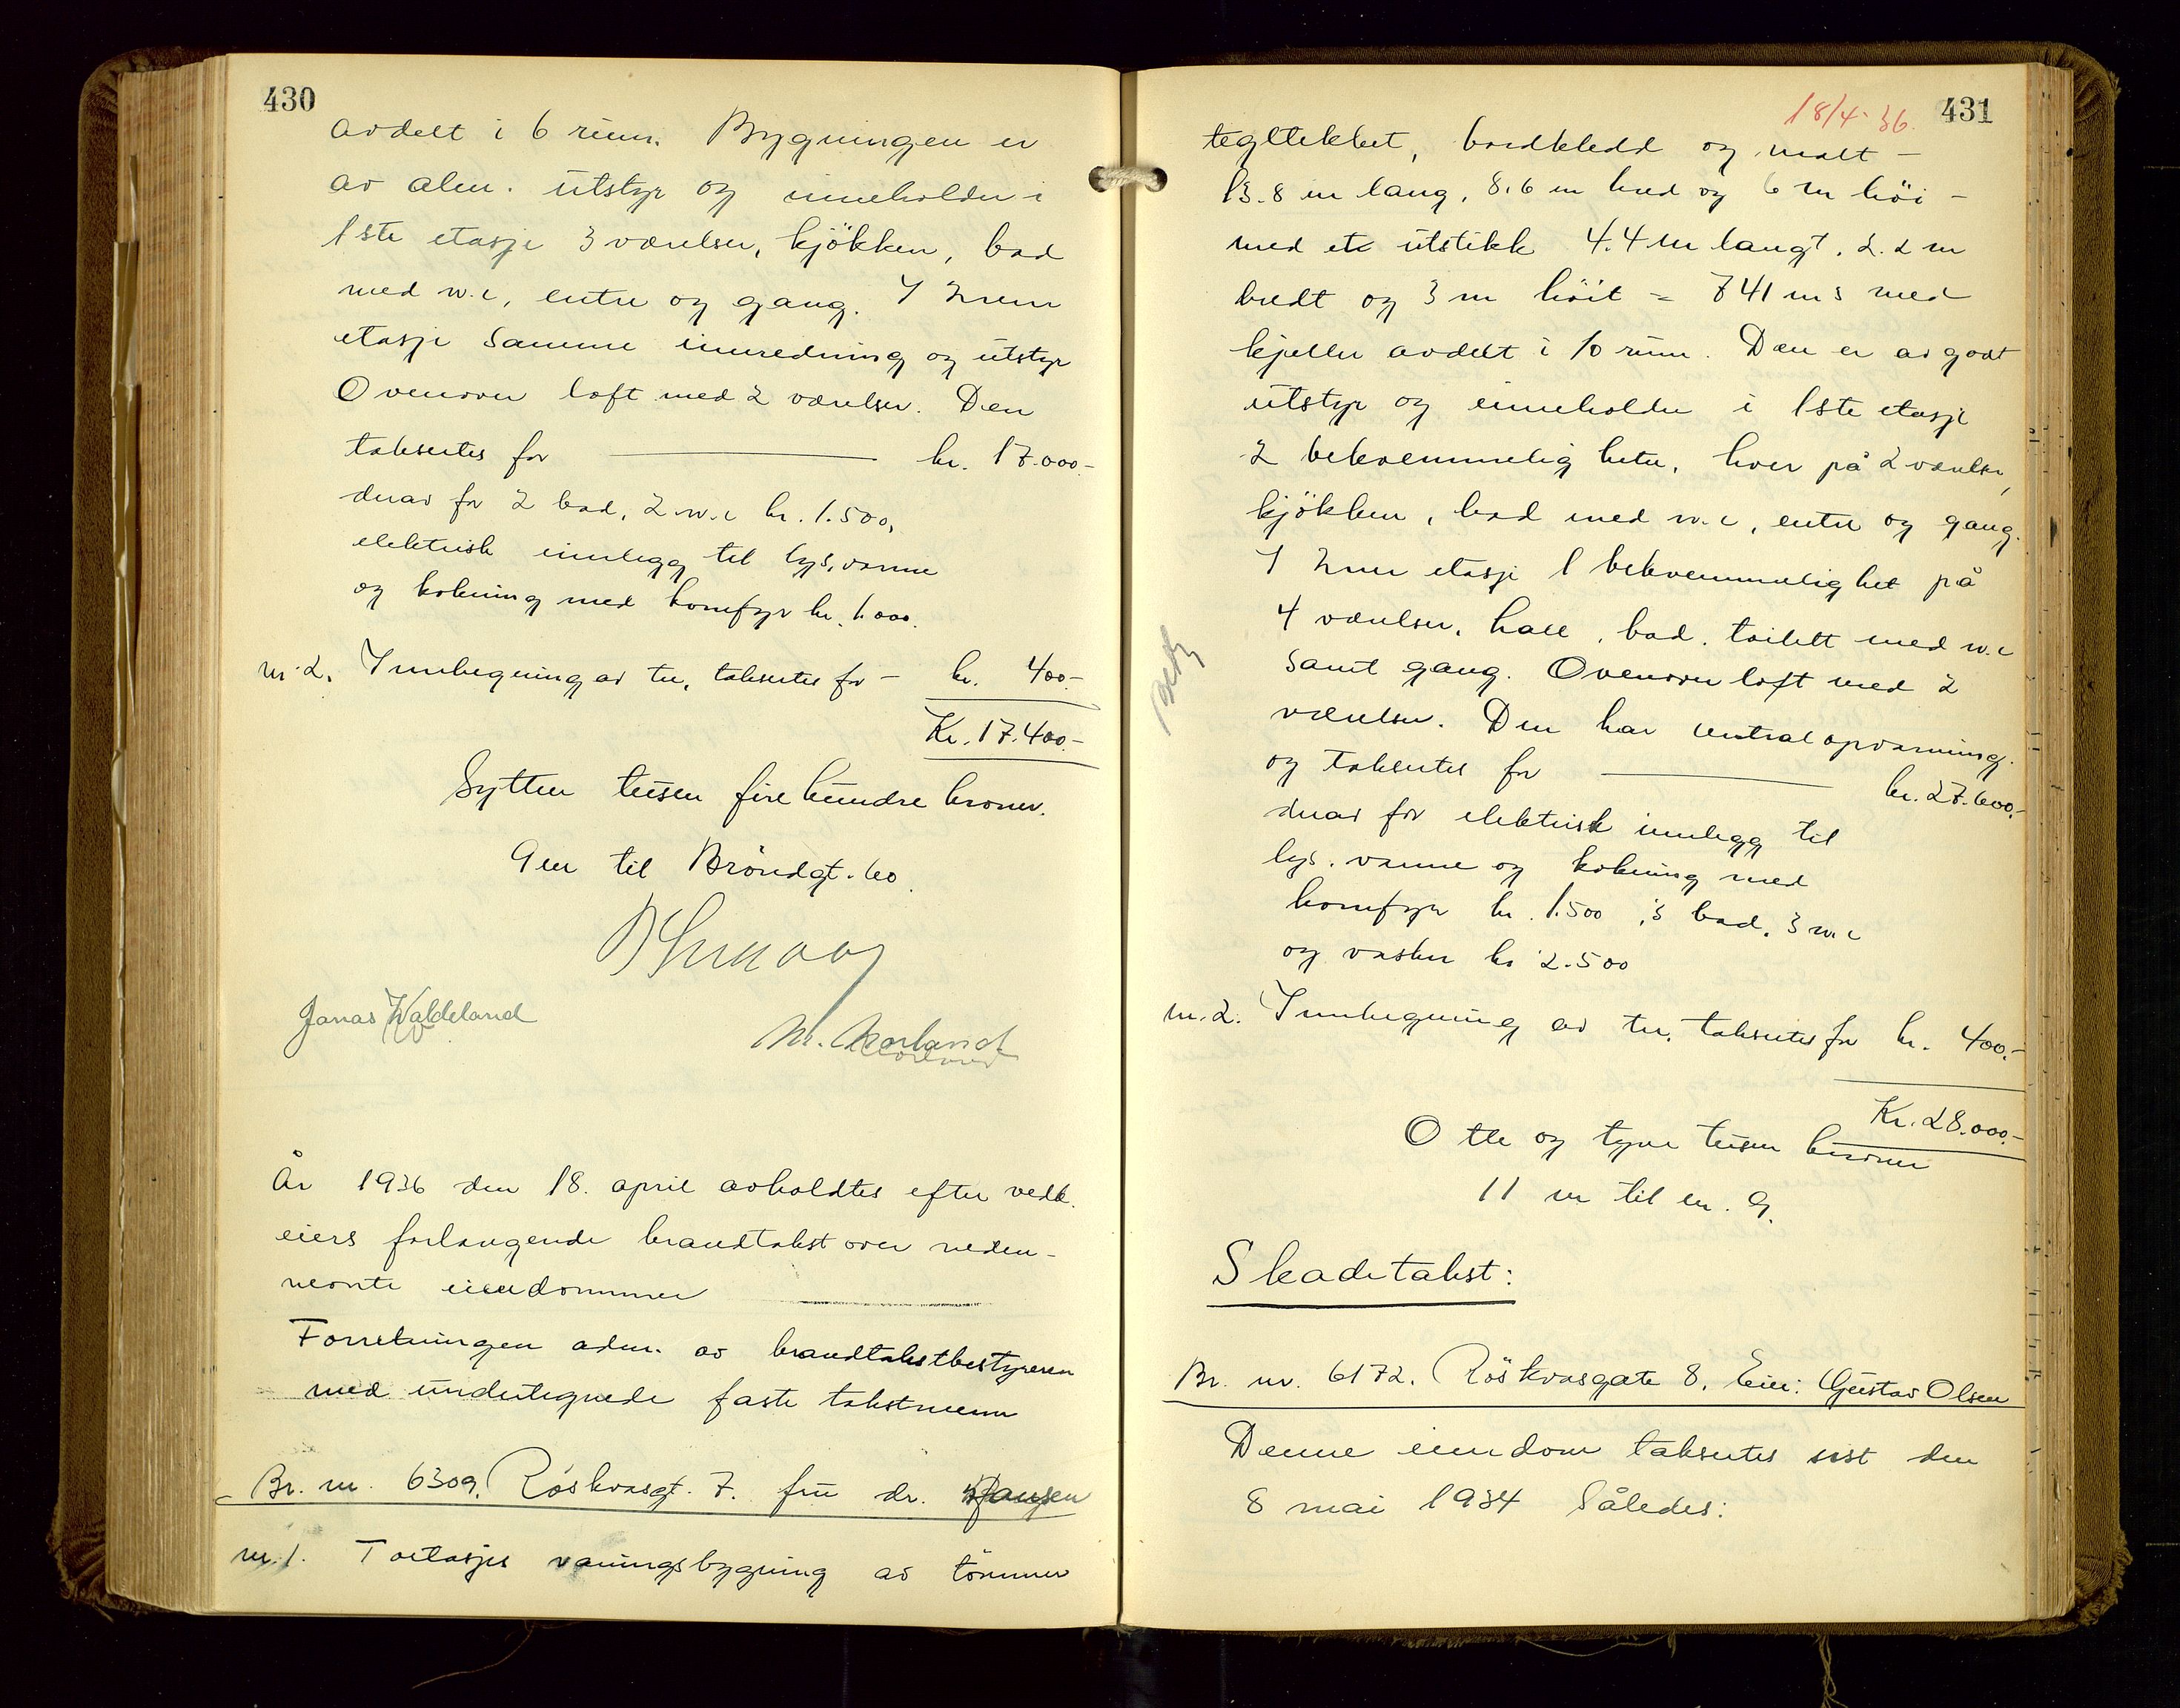 430
avdelt i 6 rum. Bygningen er
av alm. utstyr og inneholder i
1ste etasje 3 værelser, kjökken, bad
med w.c, entre og gang. I 2nen
etasje samme innredning og utstyr
Ovenover loft med 2 værelser. Den
taksertes for kr. 17.000.-
derav for 2 bad, 2 w.c kr. 1.500,
elektrisk innlegg til lys, varme
og kokning med komfyr kr. 1.000.
nr. 2. Innhegning av tre, taksertes for - kr. 400.-
Kr. 17.400.-
Sytten tusen fire hundre kroner.
9 m til Bröndgt. 60.
Jonas Waldeland
M. Norland
År 1936 den 18. april avholdtes efter vedk.
eiers forlangende brandtakst over neden-
nevnte eiendommer
Forretningen adm. av brandtakstbestyreren
med undertegnede faste takstmenn
Br. nr. 6309. Röskvasgt. 7. fru dr. Hansen
nr. 1. Toetasjes våningsbygning av tömmer
18/4-36. 431
tegltekket, bordkledd og malt -
13.8 m lang, 8.6 m bred og 6 m höi -
med et utstikk 4.4 m langt, 2.2 m
bredt og 3 m höit = 741 m3 med
kjeller avdelt i 10 rum. Den er av godt
utstyr og inneholder i 1ste etasje
2 bekvemmeligheter, hver på 2 værelser,
kjökken, bad med w.c, entre og gang.
I 2nen etasje 1 bekvemmelighet på
4 værelser, hall, bad, toilett med w.c
samt gang. Ovenover loft med 2
værelser. Den har centralopvarming
og taksertes for kr. 27.600.-
derav for elektrisk innlegg til
lys, varme og kokning med
komfyr kr. 1.500, 3 bad, 3 w.c
og vasker kr 2.500
nr. 2. Innhegning av tre, taksertes for kr. 400.-
Kr. 28.000.-
Otte og tyve tusen kroner
11 m til nr. 9.
Skadetakst:
Br. nr. 6172. Röskvasgate 8. Eier: Gustav Olsen
Denne eiendom taksertes sist den
8 mai 1934 således: